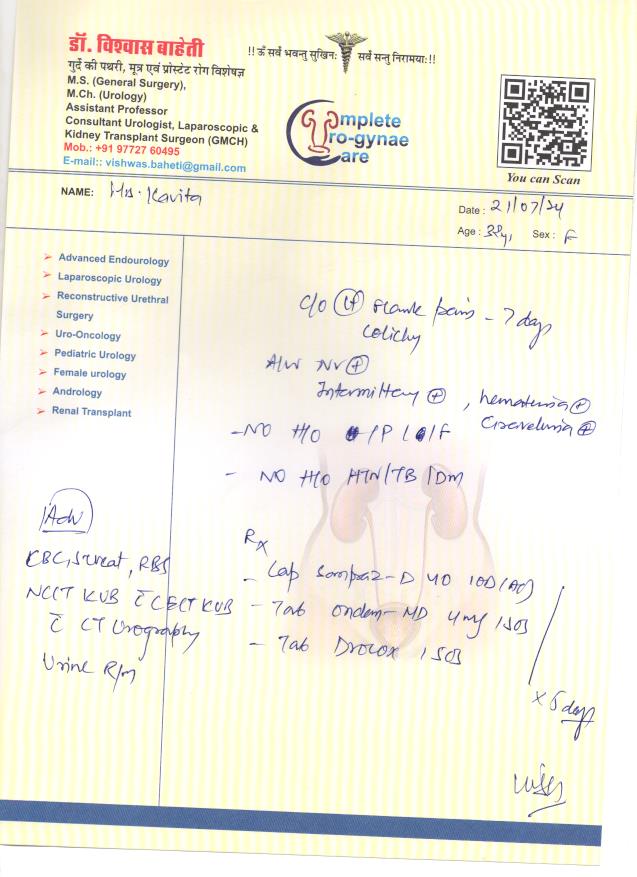 डॉ. विश्वास बाहेती
गुर्दे की पथरी, मूत्र एवं प्रोस्टेट रोग विशेषज्ञ
M.S. (General Surgery),
M.Ch. (Urology)
Assistant Professor
Consultant Urologist, Laparoscopic &
Kidney Transplant Surgeon (GMCH)
Mob.: +91 97727 60495
E-mail:: vishwas.baheti@gmail.com
!! ॐ सर्वे भवन्तु सुखिनः सर्वे सन्तु निरामयाः!!
Complete
Uro-gynae
Care
You can Scan
NAME: Mrs. Kavita
Date : 21/07/24
Age : Sex : F
Advanced Endourology
Laparoscopic Urology
Reconstructive Urethral
Surgery
Uro-Oncology
Pediatric Urology
Female urology
Andrology
Renal Transplant
C/O Lt flank pain - 7 days
colicky
A/W NV +
Intermittency +, hematuria +
- NO H/O /P/ /F
- NO H/O HTN/TB/DM
Adv
CBC, S.creat, RBS
NCCT KUB c CECT KUB
c CT Urography
Urine R/m
Rx
- Cap Sompraz-D 40 1OD (AC)
- Tab Ondem-MD 4mg 1SOS
- Tab Drocox 1SOS
x 5 days